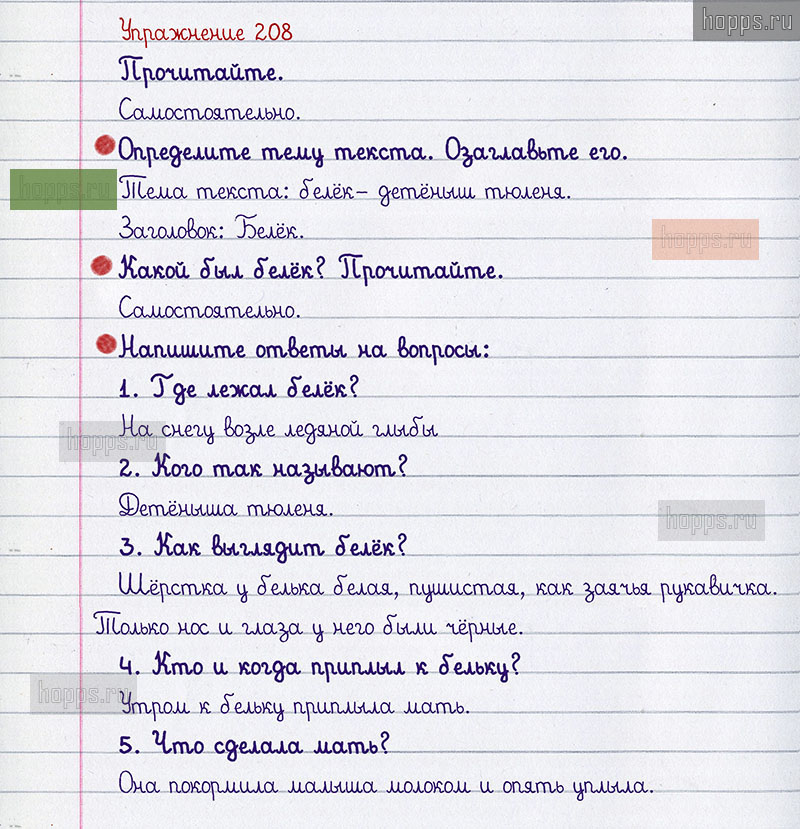 hopps.ru
Упражнение 208
Прочитайте.
Самостоятельно.
Определите тему текста. Озаглавьте его.
hopps.ru
Тема текста: белёк– детёныш тюленя.
Заголовок: Белёк.
hopps.ru
Какой был белёк? Прочитайте.
Самостоятельно.
Напишите ответы на вопросы:
1. Где лежал белёк?
На снегу возле ледяной глыбы
hopps.ru
2. Кого так называют?
Детёныша тюленя.
hopps.ru
3. Как выглядит белёк?
Шёрстка у белька белая, пушистая, как заячья рукавичка.
Только нос и глаза у него были чёрные.
4. Кто и когда приплыл к бельку?
hopps.ru
Утром к бельку приплыла мать.
5. Что сделала мать?
Она покормила малыша молоком и опять уплыла.